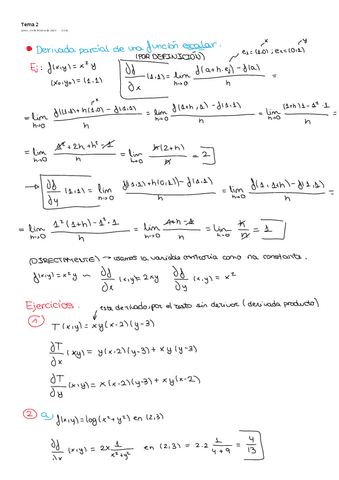 Tema 2
• Derivada parcial de una función escalar.
(POR DEFINICIÓN)
e₁ = (1,0) ; e₂ = (0,1)
x y
Ej: f(x,y) = x² y
(x₀,y₀) = (1,1)
∂f/∂x (1,1) = lim h→0 f(a+h·ej) - f(a) / h
= lim h→0 f((1,1)+h(1,0)) - f(1,1) / h = lim h→0 f(1+h,1) - f(1,1) / h = lim h→0 (1+h)²·1 - 1²·1 / h =
= lim h→0 1² + 2h + h² - 1 / h = lim h→0 h(2+h) / h = 2
→ ∂f/∂y (1,1) = lim h→0 f((1,1)+h(0,1)) - f(1,1) / h = lim h→0 f(1,1+h) - f(1,1) / h =
= lim h→0 1²(1+h) - 1²·1 / h = lim h→0 1+h-1 / h = lim h→0 h / h = 1
(DIRECTAMENTE) → usamos la variable contraria como una constante.
f(x,y) = x² y ∂f/∂x (x,y) = 2xy ∂f/∂y (x,y) = x²
Ejercicios.
esta derivado, por el resto sin derivar (derivada producto)
1
T(x,y) = xy(x-2)(y-3)
∂T/∂x (x,y) = y(x-2)(y-3) + xy(y-3)
∂T/∂y (x,y) = x(x-2)(y-3) + xy(x-2)
2 a) f(x,y) = log(x²+y²) en (2,3)
∂f/∂x (x,y) = 2x 1/x²+y² en (2,3) = 2·2 1/4+9 = 4/13